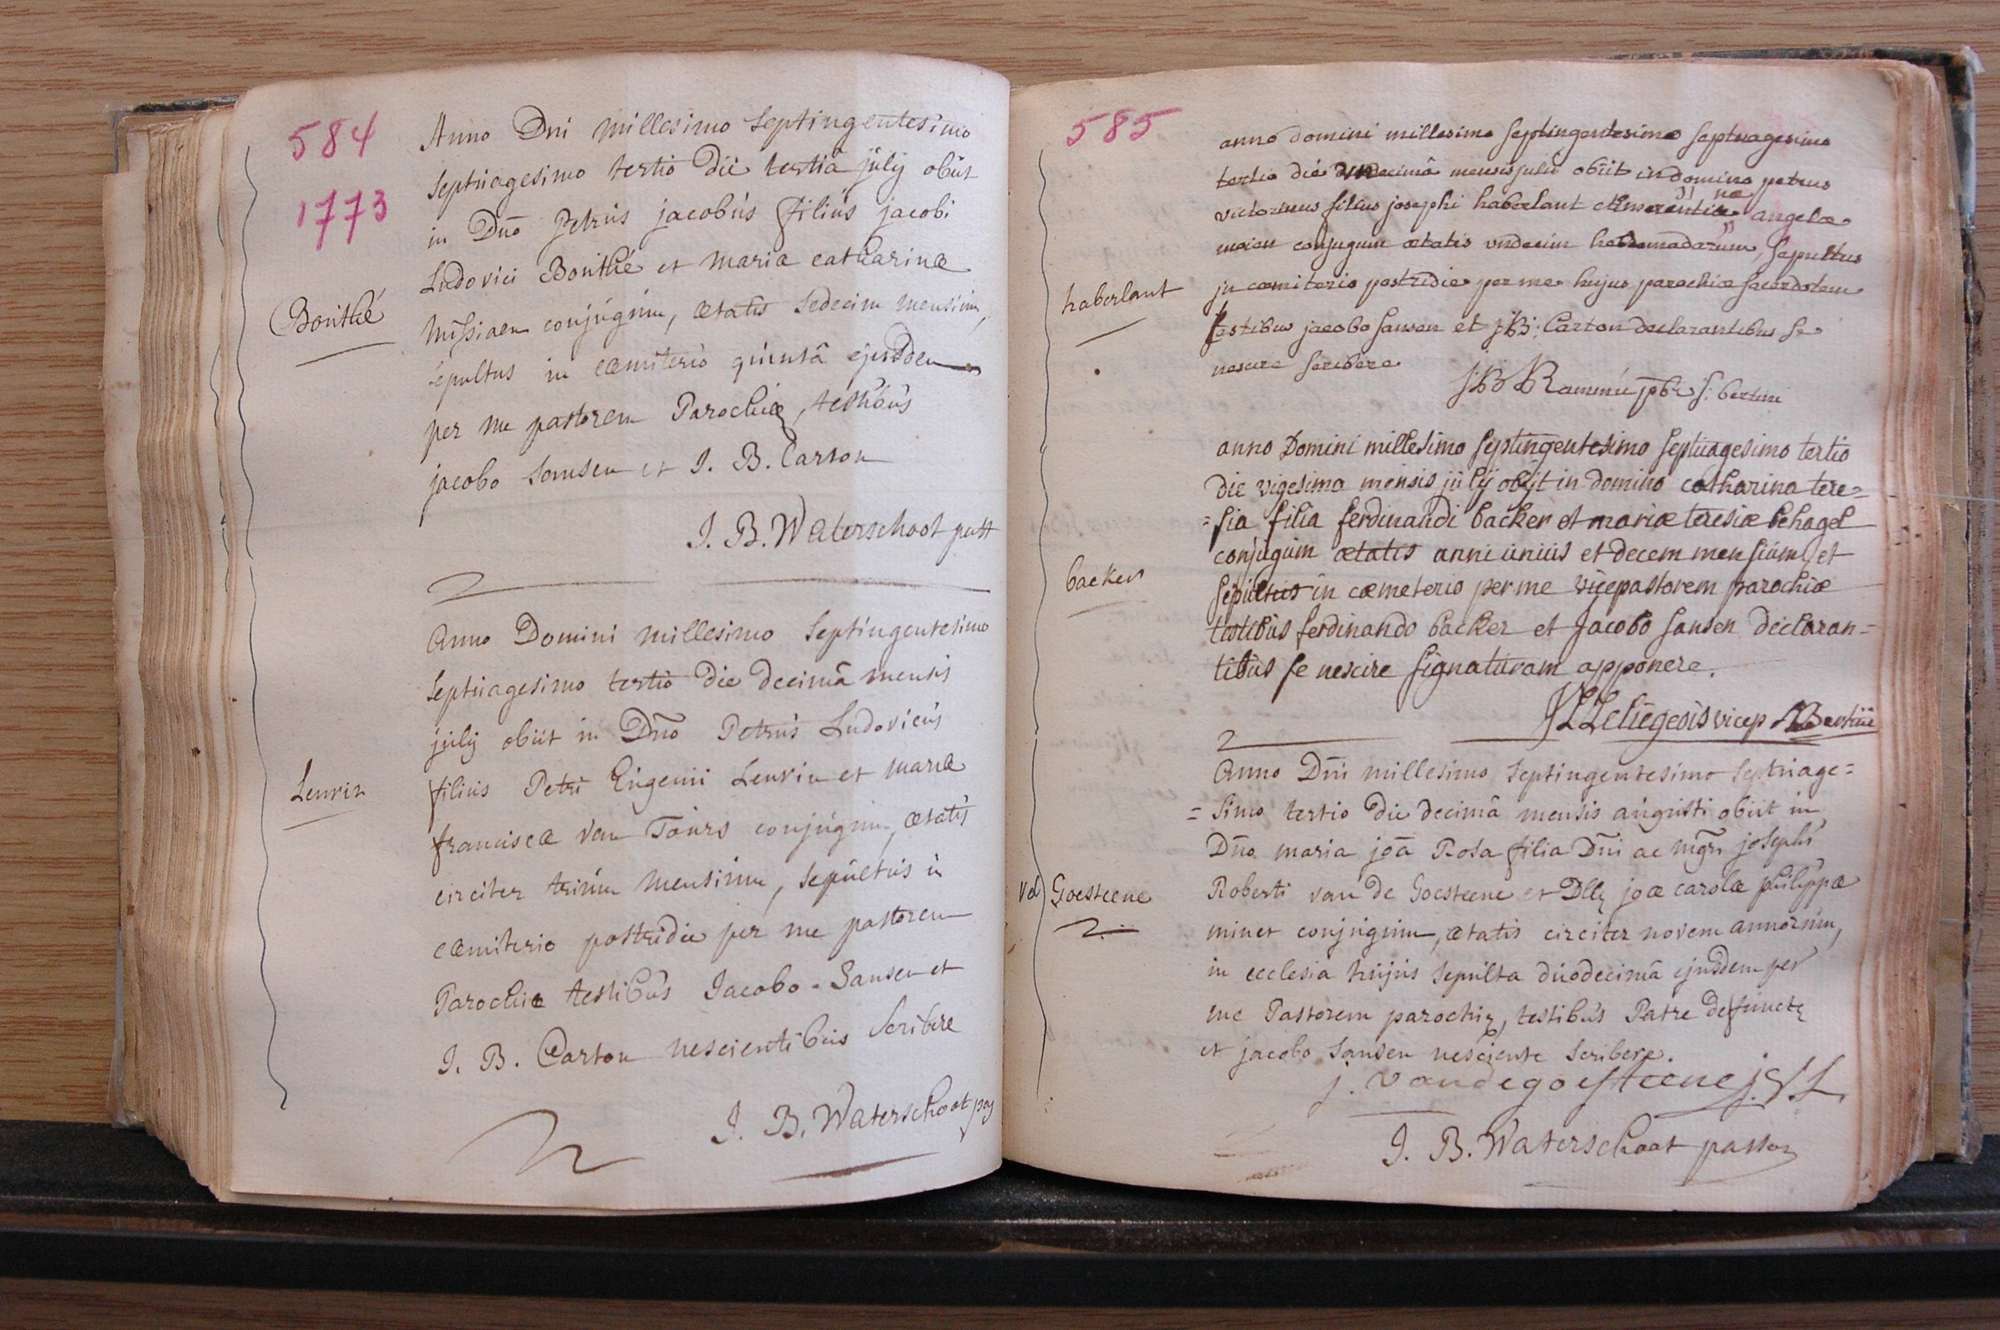 584
1773
Anno Dni millesimo septingentesimo
septuagesimo tertio die tertiâ julij obiit
in Dño Petrus jacobus filius jacobi
Ludovici Bonthé et Maria catharinæ
Missiaen conjugum, ætatis sedecim mensium,
sepultus in cæmiterio quintâ ejusdem
per me pastorem Parochiæ, testibus
jacobo Sansen et J. B. Carton
J. B. Waterschoot past
Bonthé
Anno Domini millesimo septingentesimo
septuagesimo tertio die decimâ mensis
julij obiit in Dño Petrus Ludovicus
filius Petri Eugenii Leuvin et mariæ
franciscæ van Tours conjugum, ætatis
circiter trium mensium, sepultus in
cæmiterio postridie per me pastorem
Parochiæ testibus Jacobo Sansen et
J. B. Carton nescientibus scribere
J. B. Waterschoot pas
Leuvin
585
anno domini millesimo septingentesimo septuagesimo
tertio die undecimâ mensis julii obiit in domino petrus
victorinus filius josephi haberlant et angelæ
conjugum ætatis undecim hebdomadarum, sepultus
in cæmiterio postridie per me hujus parochiæ sacerdotem
testibus jacobo sansen et J:B: Carton declarantibus se
nescire scribere
haberlant
anno Domini millesimo septingentesimo septuagesimo tertio
die vigesima mensis julij obijt in domino catharina tere=
=sia filia ferdinandi backer et mariæ teresiæ behagel
conjugum ætatis anni unius et decem mensium et
sepultus in cæmeterio per me vicepastorem parochiæ
testibus ferdinando backer et Jacobo sansen declaran=
tibus se nescire signaturam apponere.
backer
Anno Dni millesimo septingentesimo septuage=
=simo tertio die decimâ mensis augusti obiit in
Dño maria joã Rosa filia Dñi ac mgri josephi
Roberti van de Goesteene et Dllę joæ carolæ philippæ
minet conjugum, ætatis circiter novem annorum,
in ecclesia hujus sepulta duodecimâ ejusdem per
me Pastorem parochię, testibus Patre defunctę
et jacobo Sansen nesciente scribere.
j. vandegoesteene
J. B. Waterschoot pastor
Vd Goesteene